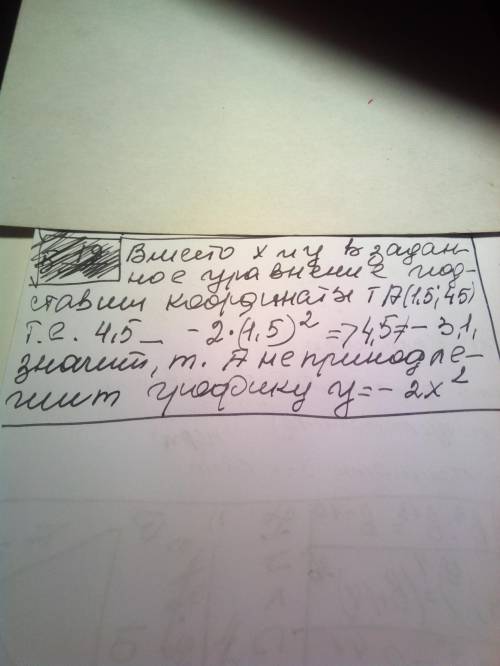 Вместо х и у в задан-
ное уравнение под-
ставим координаты т А(1,5; 4,5)
т.е. 4,5 _ -2·(1,5)² => 4,5 ≠ -3,1,
значит, т. А не принодле-
жит графику у = - 2х²